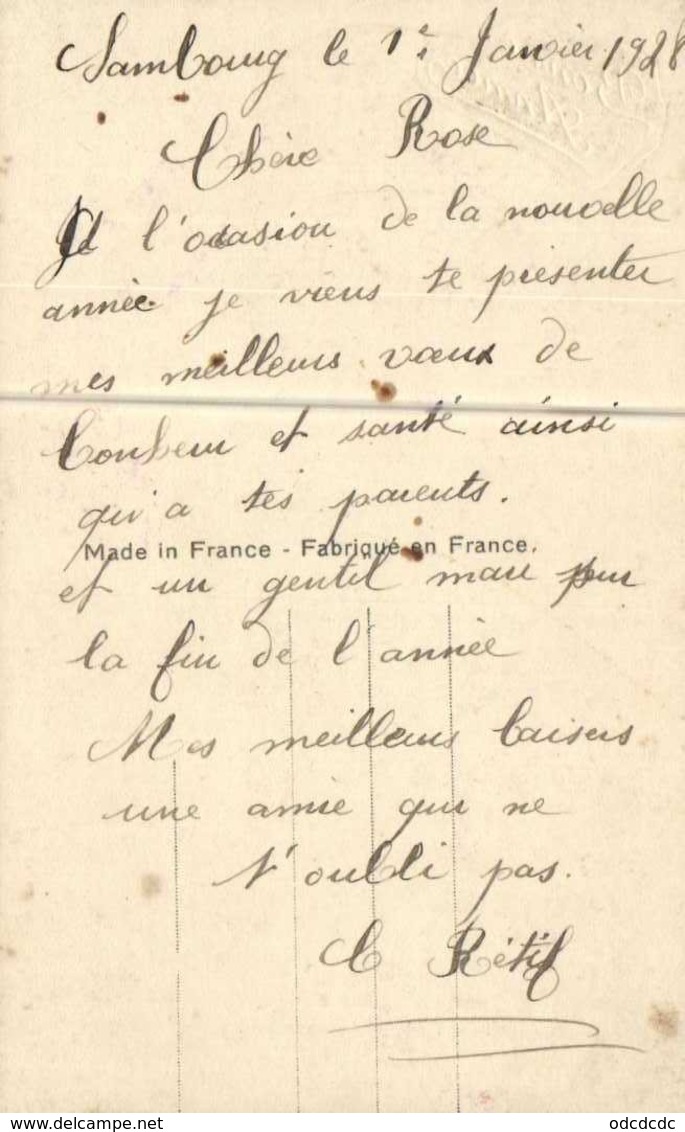 Sambourg le 1er Janvier 1928
Chère Rose
A l'ocasion de la nouvelle
année je viens te présenter
mes meilleurs vœux de
bonheur et santé ainsi
qu'a tes parents.
Made in France - Fabriqué en France.
et un gentil mari pour
la fin de l'année
Mes meilleurs baisers
une amie qui ne
t'oubli pas.
C Rétif
odcdcdc